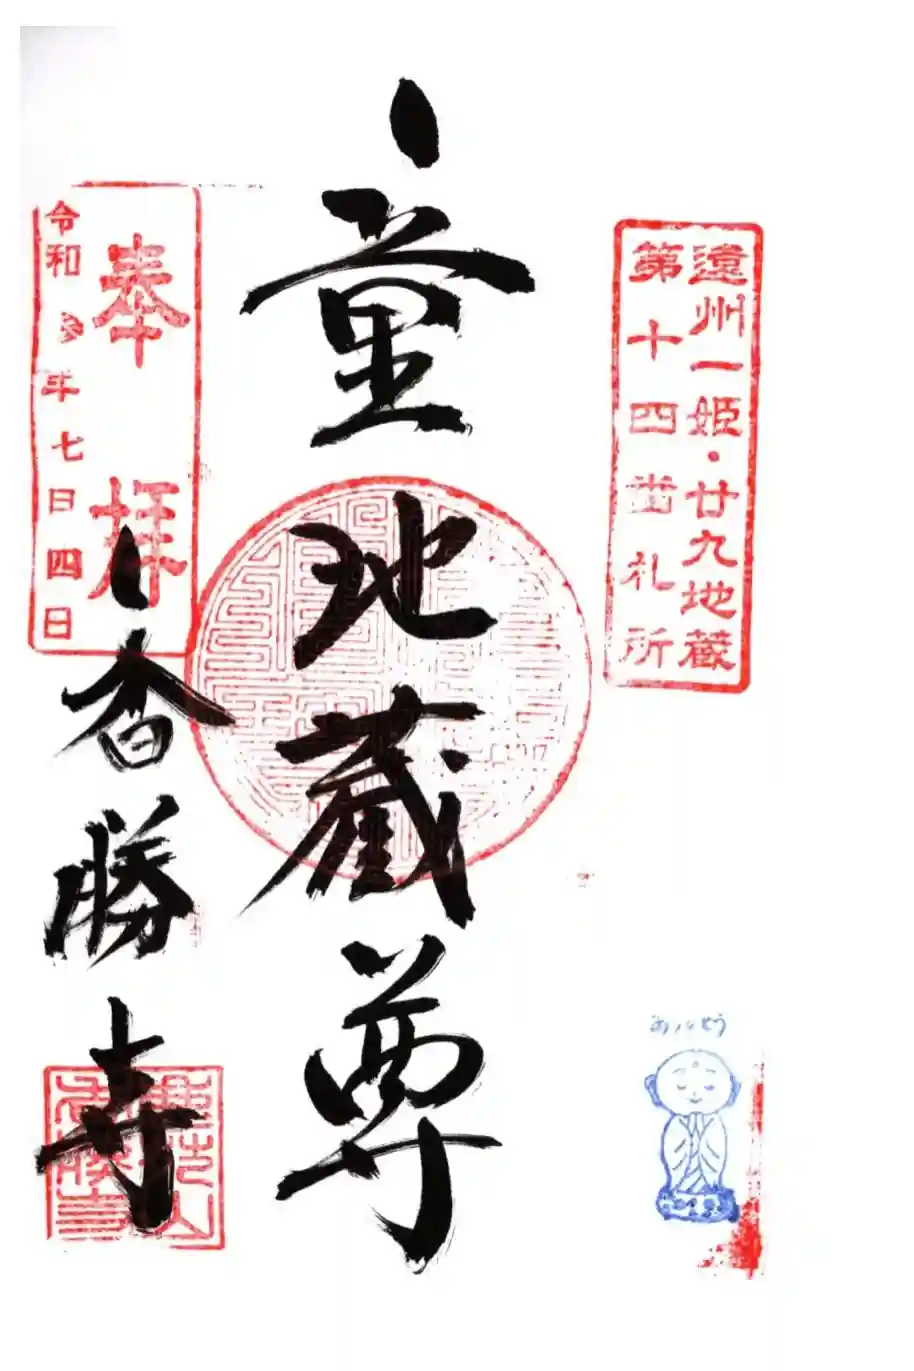 遠州一姫・廿九地蔵
第十四番札所
童地蔵尊
奉拝
令和参年七月四日
香勝寺